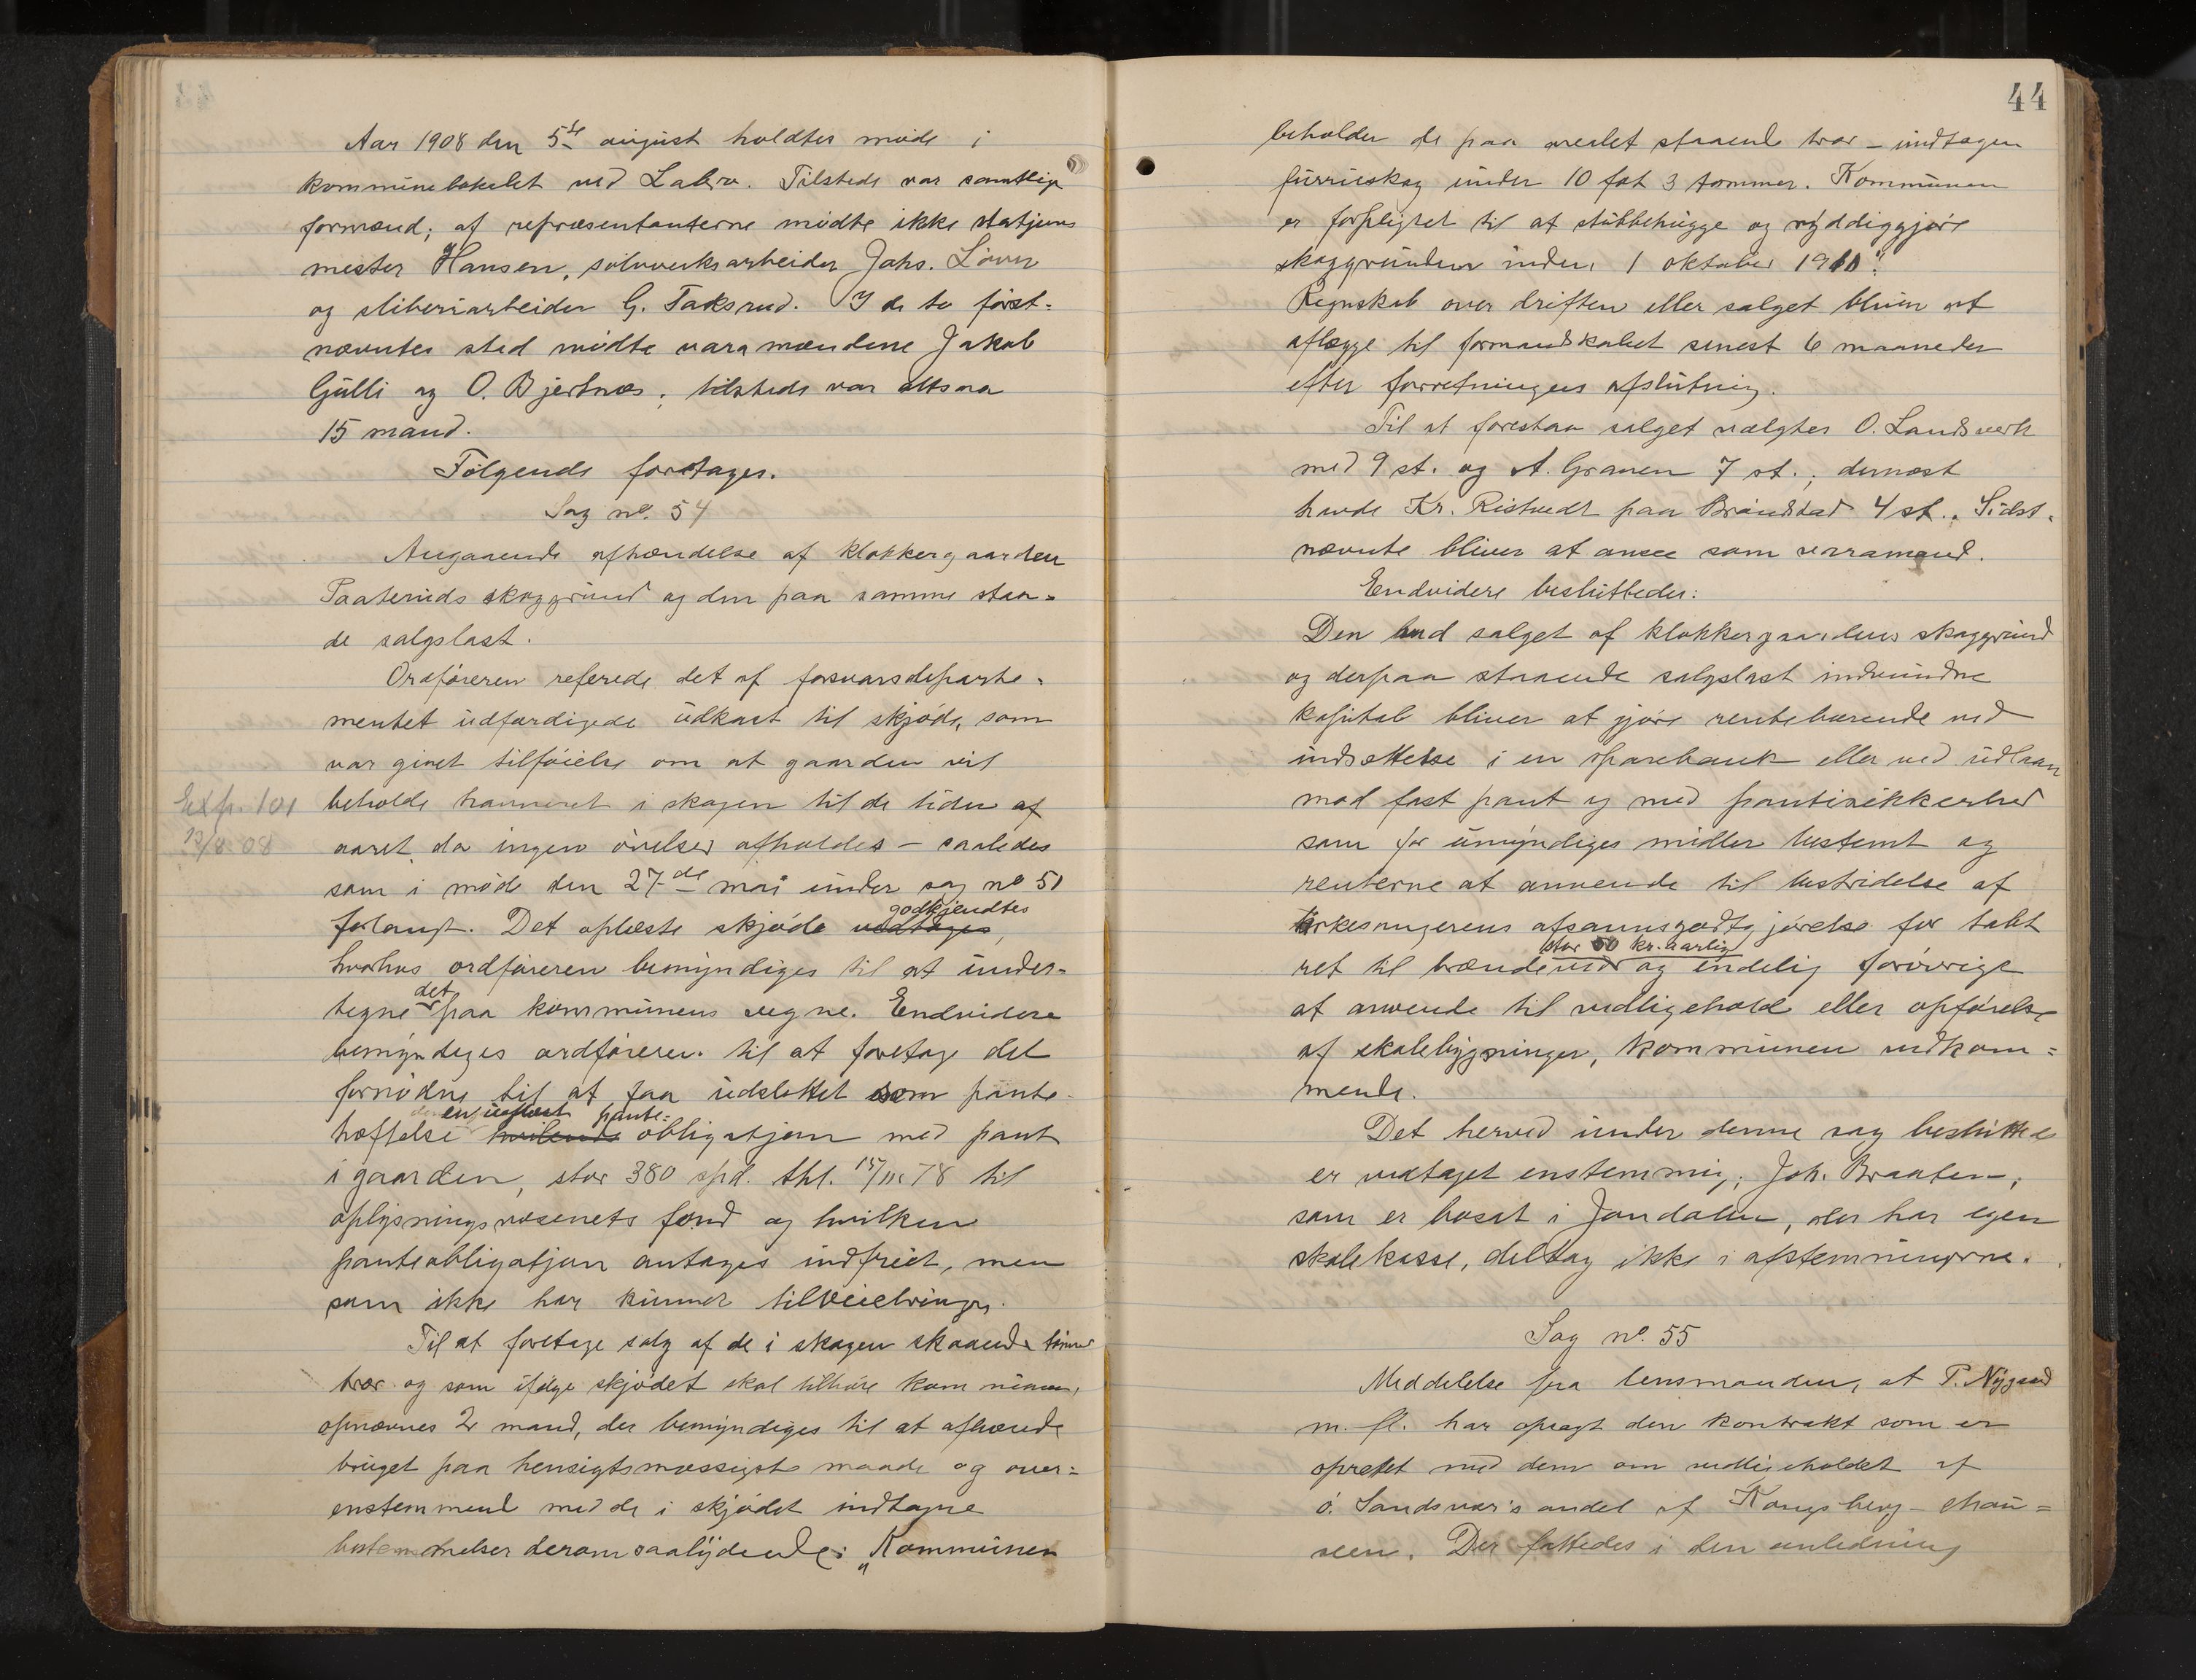 Aar 1908 den 5te august holdtes møde i
kommunelokalet ved Labro. Tilstede var samtlige
formænd; af repræsentanterne mødte ikke statjons
mester Hansen, sølvverksarbeider Johs. Løver
og sliberiarbeider G. Taksrud. I de to først-
nævntes sted mødte varamændene Jakob
Gulli og O. Bjertnæs; tilstede var altsaa
15 mand.
Følgende foretages.
Sag no. 54
Angaaende afhændelse af klokkergaarden
Paateruds skoggrund og den paa samme staa-
de salgslast.
Ordføreren referede det af forsvarsdeparte-
mentet udfærdigede udkast til skjøde, som
var givet tilføielse om at gaarden vil
beholde havneret i skogen til de tider af
aaret, da ingen øvelser afholdes – saaledes
som i møde den 27de mai under sag no 51
forlangt. Det oplæste skjøde vedtages godkjendtes,
hvorhos ordføreren bemyndiges til at under-
tegne det paa kommunens vegne. Endvidere
bemyndiges ordføreren til at foretage det
fornødne til at faa udslettet som pante-
hæftelse hvilende en uaflæst pante-obligatjon med pant
i gaarden, stor 380 spd. thl. 15/11 78 til
oplysningsvæsenets fond og hvilken
panteobligatjon antages indfriet, men
som ikke har kunnet tilveiebringes.
Til at foretage salg af de i skogen staaende tømmer
trær og som ifølge skjødet skal tilhøre kommunen,
opnævnes 2 mand, der bemyndiges til at afhænde
bruget paa hensigtsmæssigste maade og over-
enstemmend med de i skjødet indtagne
bestemmelser derom saalydende: „Kommunen
Exp. 101
13/8 08
44
beholder de paa arealet staaende trær – undtagen
furrueskog under 10 fot 3 tommer. Kommunen
er forpligtet til at stubbehugge og ryddiggjøre
skoggrunden inden 1 oktober 1910".
Regnskab over driften eller salget bliver at
aflægge til formandskabet senest 6 maaneder
efter forretningens afslutning.
Til at forestaa salget valgtes O. Landsverk
med 9 st. og A. Granen 7 st.; dernæst
havde Kr. Ristvedt paa Brandstad 4 st. Sidst-
nævnte bliver at ansee som varamand.
Endvidere besluttedes:
Den ved salget af klokkergaardens skoggrund
og derpaa staaende salgslast indvundne
kapital bliver at gjøre rentebærende ved
indsættelse i en sparebank eller ved udlaan
mod fast pant og med pantesikkerhed
som for umyndiges midler bestemt og
renterne at anvende til bestridelse af
kirkesangerens afsavnsgodtgjørelse for tabt
ret til brændeved stor 50 kr. aarlig og endelig forøvrigt
at anvende til vedligehold eller opførelse
af skolebygninger, kommunen vedkom-
mende.
Det herved under denne sag besluttede
er vedtaget enstemmig; Joh. Braaten,
som er bosat i Jondalen, der har egen
skolekasse, deltog ikke i afstemningerne.
Sag no. 55
Meddelelse fra lensmanden, at P. Nygaard
m. fl. har opsagt den kontrakt som er
oprettet med dem om vedligeholdet af
ø. Sandsvær's andel af Kongsberg-chau-
seen. Der fattedes i den anledning